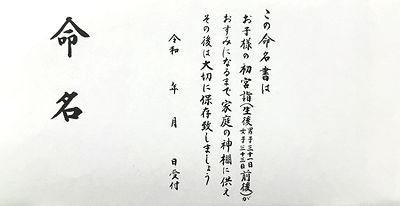 この命名書は
お子様の初宮詣(生後男子三十一日女子三十三日前後)が
おすみになるまで家庭の神棚に供え
その後は大切に保存致しましょう
令和　年　月　日受付
命名